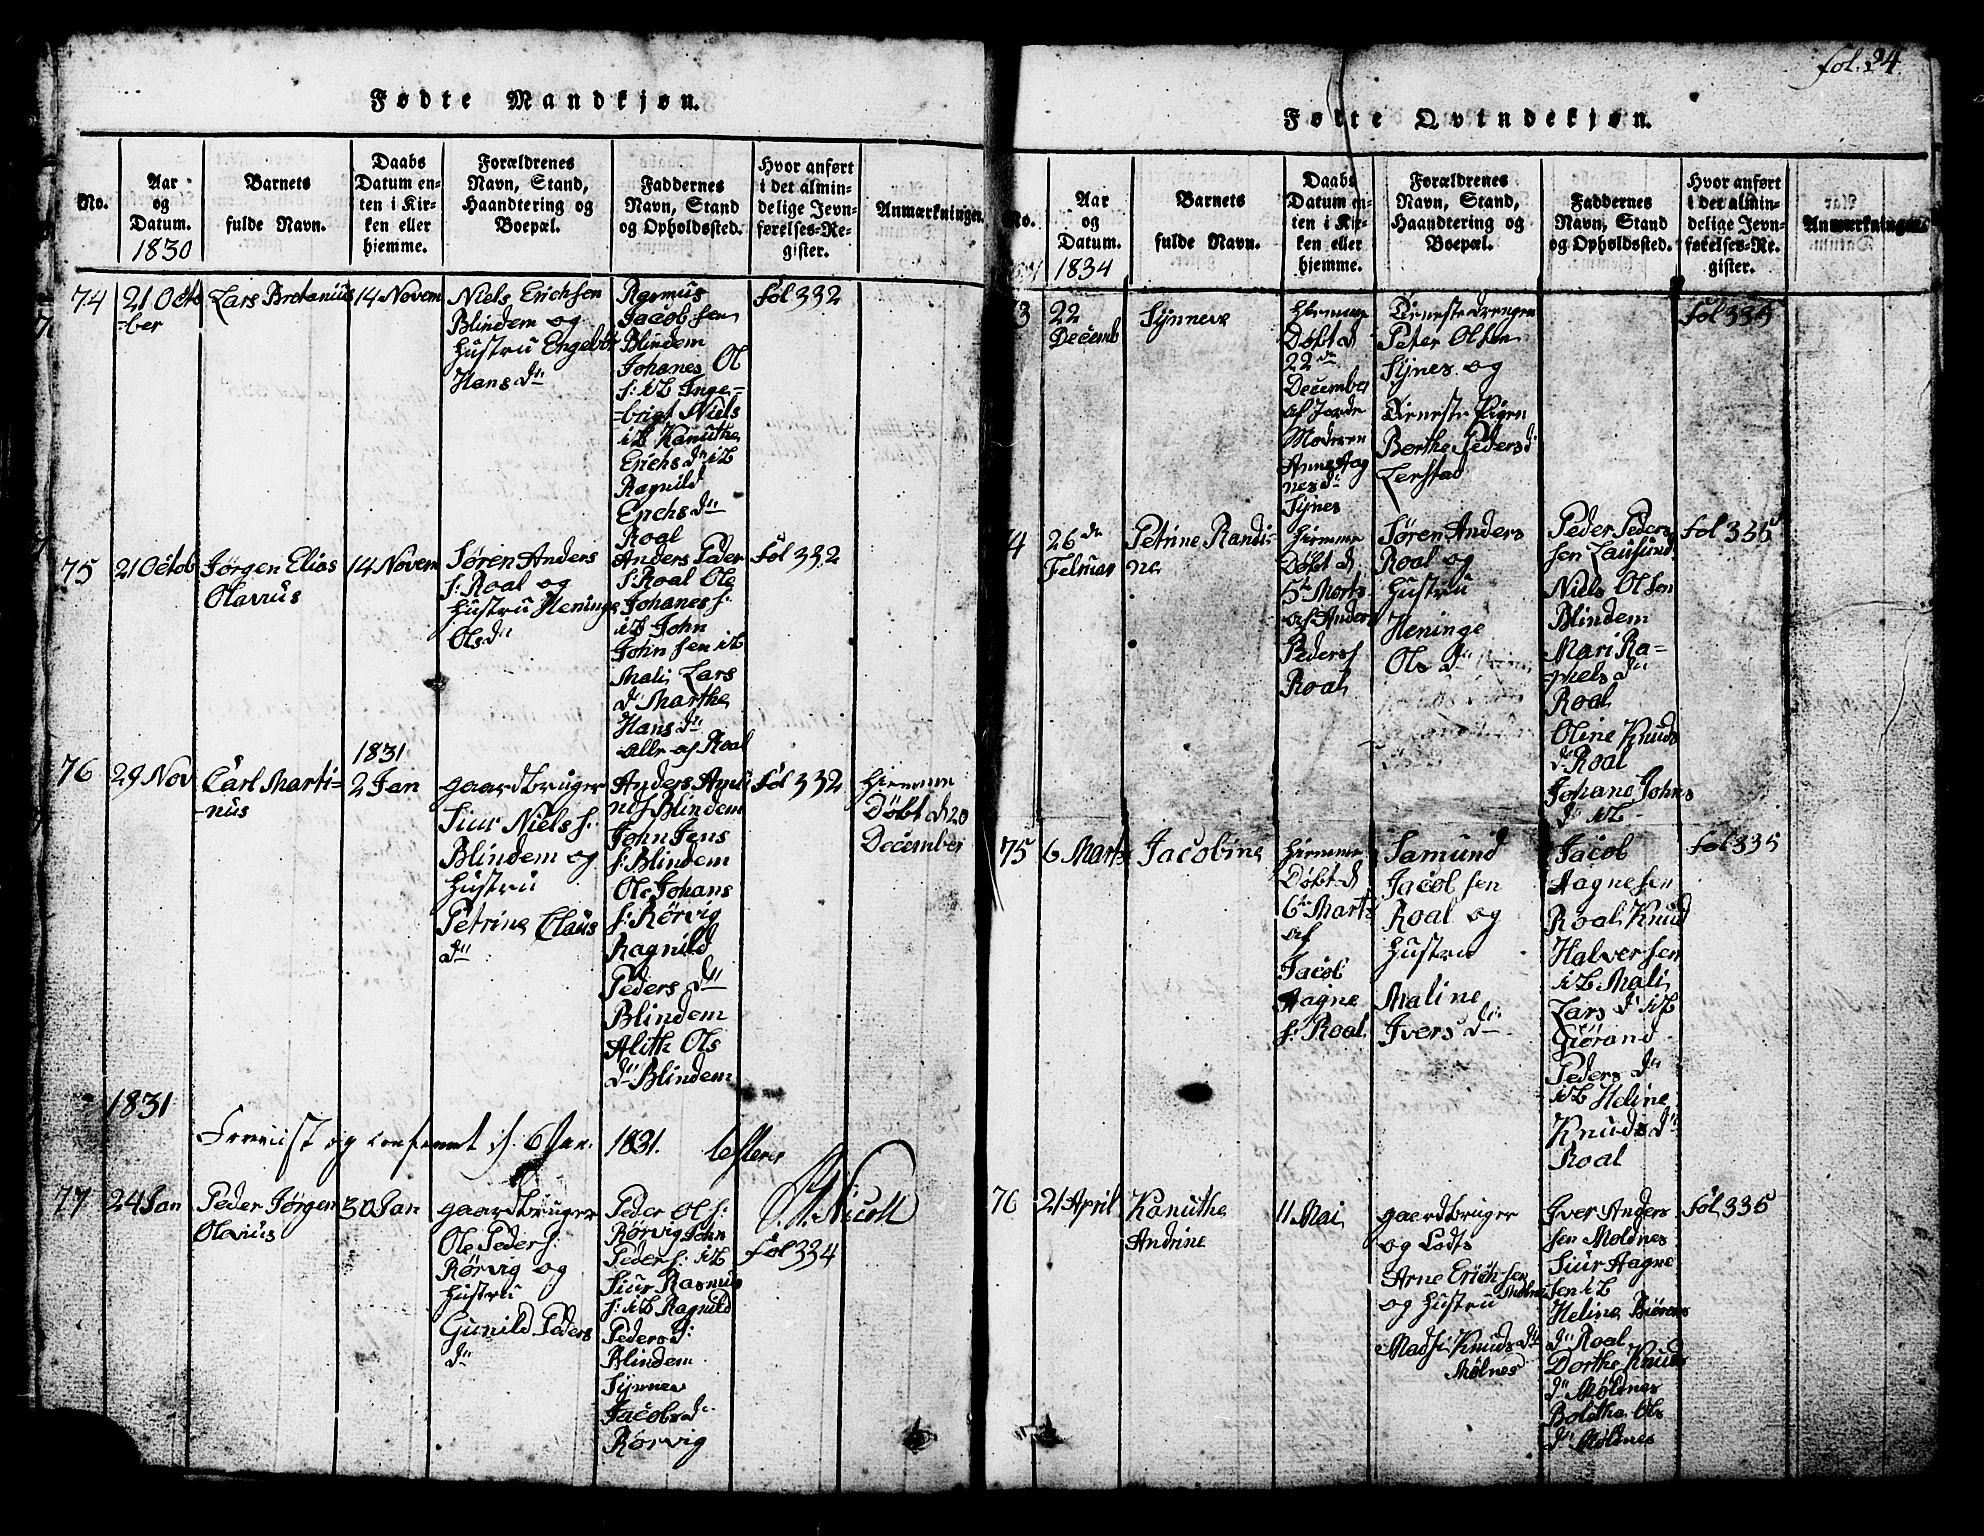 fol. 24.
Fødte Mandkjøn.
No.
Aar
og
Datum.
1830
Barnets
fulde Navn.
Daabs
Datum en-
ten i Kir-
ken eller
hjemme.
Forældrenes
Navn, Stand,
Haandtering og
Boepæl.
Faddernes
Navn, Stand
og Opholdssted.
Hvor anført
i det almin-
delige Jevn-
førelses-Re-
gister.
Anmærkninger.
74
21 Octo
-ber
Lars Bretanius
14 Novem
Niels Erichsen
Blindem og
Hustru Engebor
Hans dtr
Rasmus
Jacobsen
Blindem
Johanes Ol
s: i Z Inge-
-brigt Niels
i Z Kanuthe
Erichs dr i Z
Ragnild
Erichs dtr
Roal
fol 332
75
21 Octob
Jørgen Elias
Olavius
14 Novem
Søren Anders
s: Roal og
Hustru Heninge
Ols dtr
Anders Peder
s: Roal Ole
Johanes s:
i Z John
Johnsen i Z
Mali Lars
dr Marthe
Hans dtr
alle af Roal
fol 332
76
29 Nov
Carl Marti-
-nus
1831
2 Jan
gaardbruger
Siur Niels s:
Blindem og
Hustru
Petrine Claus
dtr
Anders
Blindem
John Jens
s: Blindem
Ole Johans
s: Rørvig
Ragnild
Peders dtr
Blindem
Alith Ols
dtr Blindem
fol 332
Hiemme
Døbt d 20
December
1831
og 6 Jan. 1831.
77
24 Jan
Peder Jørgen
Olavius
30 Jan
gaardbruger
Ole Peder s:
Rørvig og
Hustru
Gunild Peders
dtr
Peder Ol s:
Rørvig John
Peder s: i Z
Siur Rasmus
s: i Z Ragnild
Peders d:
Blindem
Synnev
Jacobs dr
Rørvig
fol 334
Fødte Qvindekjøn.
No.
Aar
og
Datum.
1834
Barnets
fulde Navn.
Daabs
Datum en-
ten i Kir-
ken eller
hjemme.
Forældrenes
Navn, Stand,
Haandtering og
Boepæl.
Faddernes
Navn, Stand
og Opholdssted.
Hvor anført
i det almin-
delige Jevn-
førelses-Re-
gister.
Anmærkninger.
3
22
Decemb
Synneve
Hiemme
Døbt d
22 de
December
af Jorde
Moderen
Anne Aag
nes dr
Synes
Tieneste drengen
Peter Olsen
Synes og
Tieneste Pigen
Berthe Peders dr
Lerstad
fol 335
4
26 de
Februar
Petrine Randi-
ne
Hiemme
Døbt d
5te Marts
af Anders
Peders s
Roal
Søren Anders
Roal og
Hustru
Heninge
Ols dtr
Peder Peder
sen Lausund
Niels Olsen
Blindem
Mari Ra-
phels dtr
Roal
Oline Knuds
dr Roal
Johane Johns
dr i Z
fol 335
75
6 Marts
Jacobine
Hiemme
Døbt d
6te Marts
af
Jacob
Aagne
s: Roal
Samund
Jacobsen
Roal og
Hustru
Maline
Ivers dtr
Jacob
Aagnesen
Roal Knud
Halversen
i Z Mali
Lars dr i Z
Giørand
Peders dtr
i Z Heline
Knuds dtr
Roal
fol 335
76
21 April
Kanuthe
Andrine
11 Mai
gaardbruger
og Lodts
Arne Erichsen
og Hustru
Madsi Knuds dtr
Mølnes
Iver Anders
sen Moldnes
Siur Aagne
sen i Z
Heline Biørns
dtr Roal
Dorthe Knuds
dtr Møldnes
Bolethe Ols
dtr Møldnes
fol 335